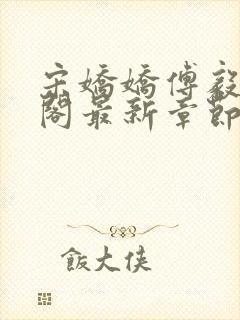 宋嬌嬌傅毅
閣最新章節
飯大俠